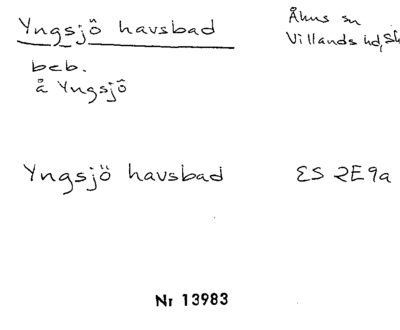 Yngsjö havsbad
Åhus sn
Villands hd, Sk
beb.
å Yngsjö
Yngsjö havsbad
ES 2E9a
Nr 13983